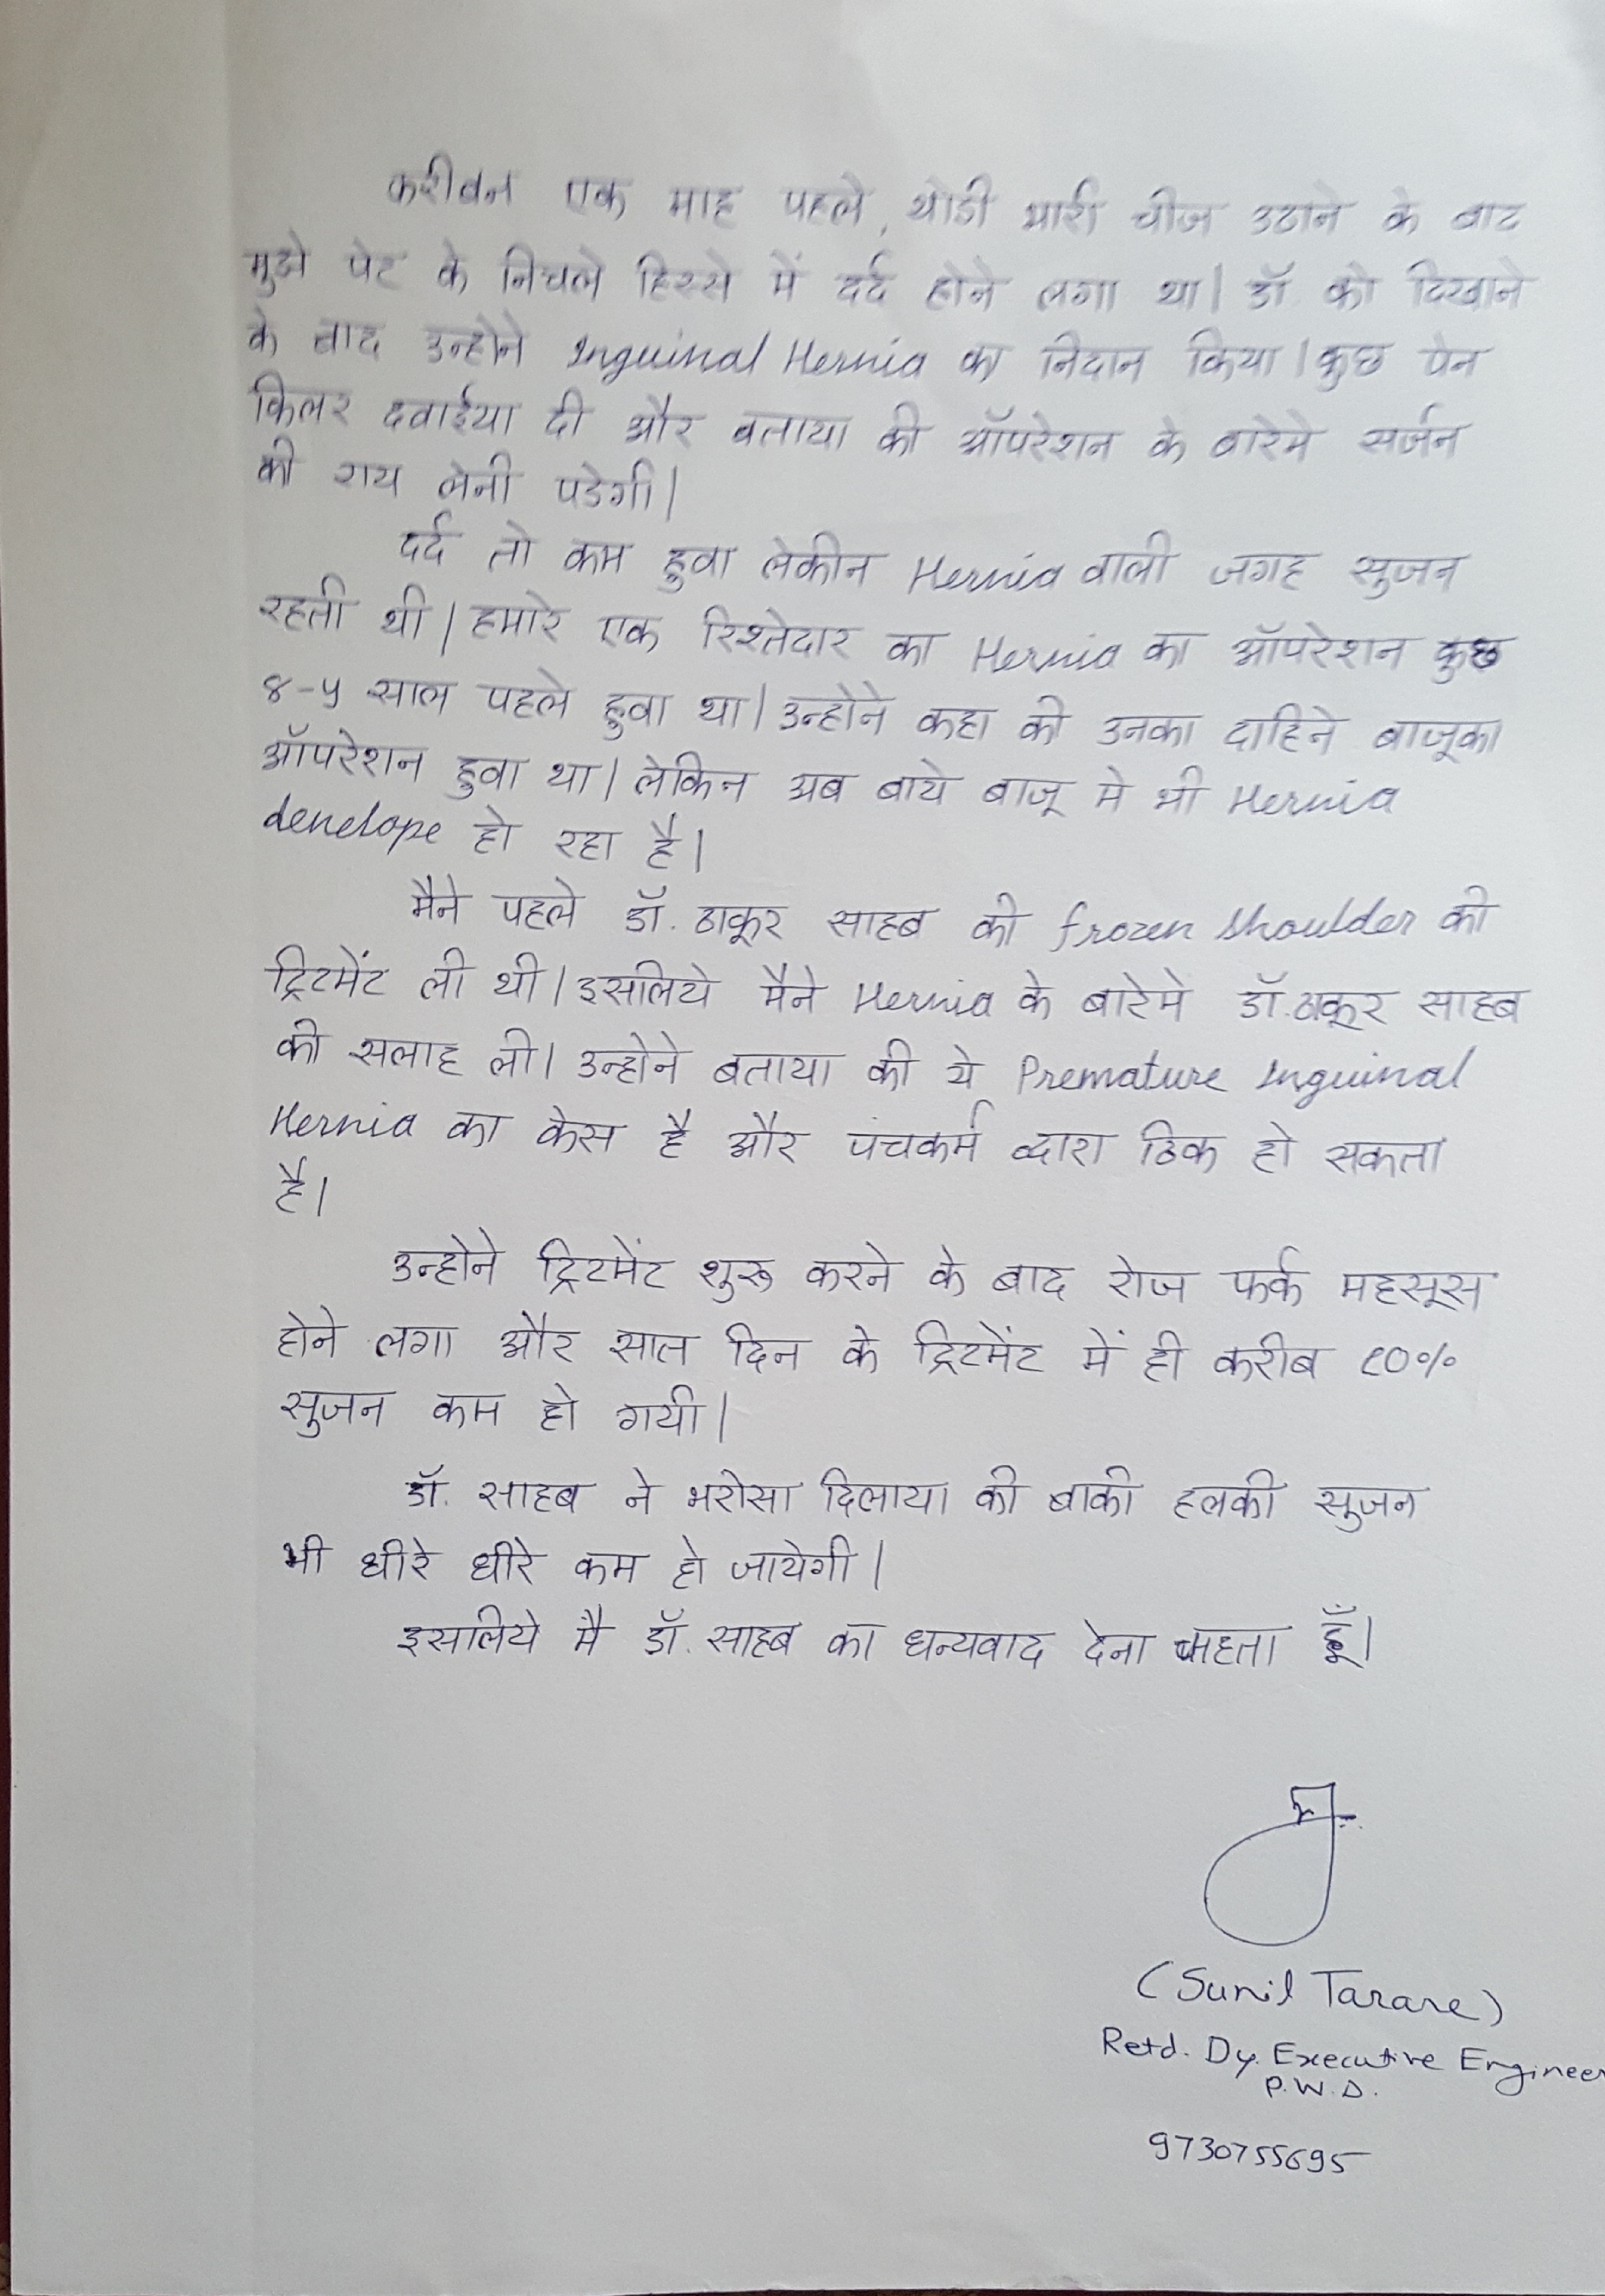 करीबन एक माह पहले, थोडी भारी चीज उठाने के बाद
मुझे पेट के निचले हिस्से में दर्द होने लगा था। डॉ. को दिखाने
के बाद उन्होने Inguinal Hernia का निदान किया। कुछ पेन
किलर दवाईया दी और बताया की ऑपरेशन के बारेमे सर्जन
की राय लेनी पडेगी।
दर्द तो कम हुवा लेकीन Hernia वाली जगह सुजन
रहती थी। हमारे एक रिश्तेदार का Hernia का ऑपरेशन कुछ
४-५ साल पहले हुवा था। उन्होने कहा की उनका दाहिने बाजूका
ऑपरेशन हुवा था। लेकिन अब बाये बाजू मे भी Hernia
denelope हो रहा है।
मैने पहले डॉ. ठाकूर साहब की frozen shoulder की
ट्रिटमेंट ली थी। इसलिये मैने Hernia के बारेमे डॉ. ठाकूर साहब
की सलाह ली। उन्होने बताया की ये Premature Inguinal
Hernia का केस है और पंचकर्म द्वारा ठिक हो सकता
है।
उन्होने ट्रिटमेंट शुरू करने के बाद रोज फर्क महसूस
होने लगा और सात दिन के ट्रिटमेंट में ही करीब ८०%
सुजन कम हो गयी।
डॉ. साहब ने भरोसा दिलाया की बाकी हलकी सुजन
भी धीरे धीरे कम हो जायेगी।
इसलिये मै डॉ. साहब का धन्यवाद देना चाहता हूँ।
(Sunil Tarare)
Retd. Dy. Executive Engineer
P.W.D.
9730755695